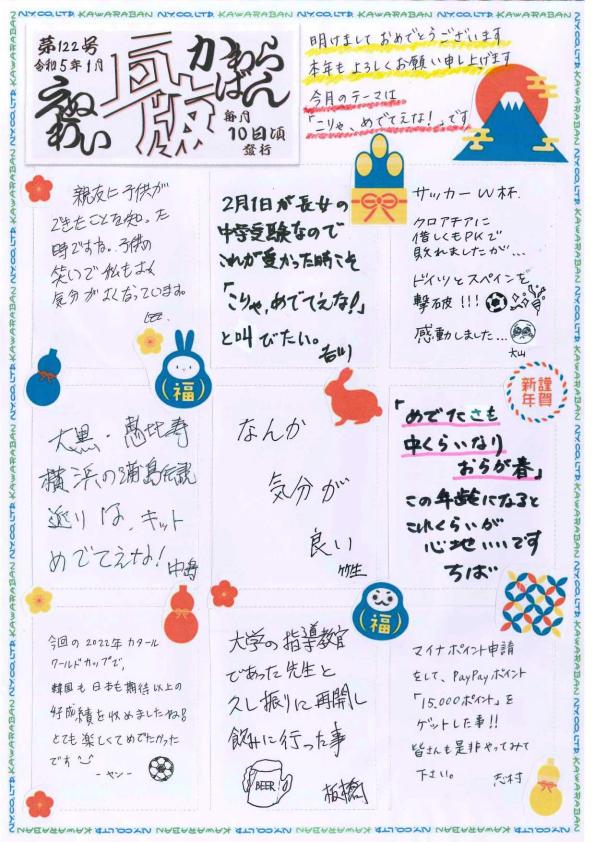 第122号
令和5年1月
かわらばん
瓦版
えぬわい
毎月
10日頃
発行
明けましておめでとうございます
本年もよろしくお願い申し上げます
今月のテーマは
「こりゃ、めでてえな！」です
親友に子供が
できたことを知った
時ですね。子供の
笑いで私もよく
気分がよくなっています。
2月1日が長女の
中学受験なので
これが受かった時こそ
「こりゃ、めでてえな！」
と叫びたい。
吉川
サッカーW杯.
クロアチアに
惜しくもPKで
敗れましたが…
ドイツとスペインを
撃破!!!
感動しました…
大山
福
謹賀
新年
大黒・恵比寿
横浜の浦島伝説
巡りは、キット
めでてえな！
中島
なんか
気分が
良い
竹生
「めでたさも
中くらいなり
おらが春」
この年齢になると
これくらいが
心地いいです
ちば
今回の2022年カタール
ワールドカップで、
韓国も日本も期待以上の
好成績を収めましたね!
とても楽しくてめでたかった
です
-ヤン-
福
大学の指導教官
であった先生と
久し振りに再開し
飲みに行った事
BEER
板橋
マイナポイント申請
をして、PayPayポイント
「15,000ポイント」を
ゲットした事!!
皆さんも是非やってみて
下さい。
志村
NY.CO.,LTD. KAWARABAN